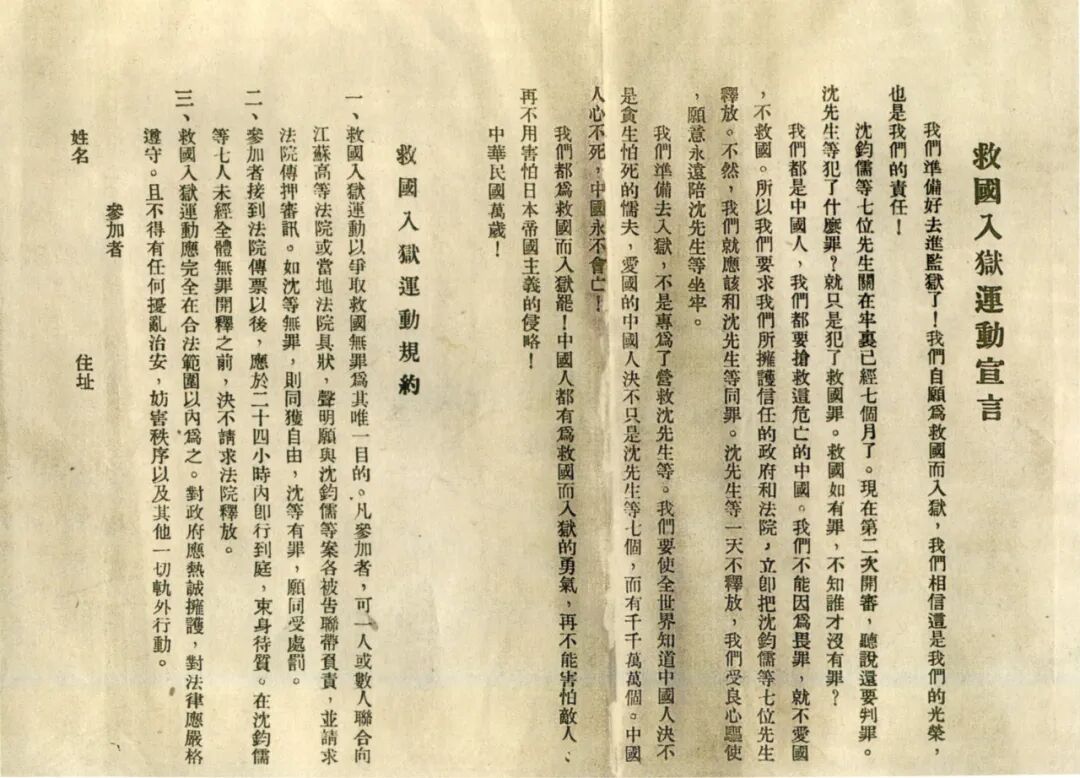 救國入獄運動宣言
我們準備好去進監獄了！我們自願爲救國而入獄，我們相信這是我們的光榮，
也是我們的責任！
沈鈞儒等七位先生關在牢裏已經七個月了。現在第二次開審，聽說還要判罪。
沈先生等犯了什麼罪？就只是犯了救國罪。救國如有罪，不知誰才沒有罪？
我們都是中國人，我們都要搶救這危亡的中國。我們不能因爲畏罪，就不愛國
，不救國。所以我們要求我們所擁護信任的政府和法院，立卽把沈鈞儒等七位先生
釋放。不然，我們就應該和沈先生等同罪。沈先生等一天不釋放，我們受良心驅使
，願意永遠陪沈先生等坐牢。
我們準備去入獄，不是專爲了營救沈先生等。我們要使全世界知道中國人決不
是貪生怕死的懦夫，愛國的中國人決不只是沈先生等七個，而有千千萬萬個。中國
人心不死，中國永不會亡！
我們都爲救國而入獄罷！中國人都有爲救國而入獄的勇氣，再不能害怕敵人、
再不用害怕日本帝國主義的侵略！
中華民國萬歲！
救國入獄運動規約
一、救國入獄運動以爭取救國無罪爲其唯一目的。凡參加者，可一人或數人聯合向
江蘇高等法院或當地法院具狀，聲明願與沈鈞儒等案各被告聯帶負責，並請求
法院傳押審訊。如沈等無罪，則同獲自由，沈等有罪，願同受處罰。
二、參加者接到法院傳票以後，應於二十四小時內卽行到庭，束身待質。在沈鈞儒
等七人未經全體無罪開釋之前，決不請求法院釋放。
三、救國入獄運動應完全在合法範圍以內爲之。對政府應熱誠擁護，對法律應嚴格
遵守。且不得有任何擾亂治安，妨害秩序以及其他一切軌外行動。
參加者
姓名 住址